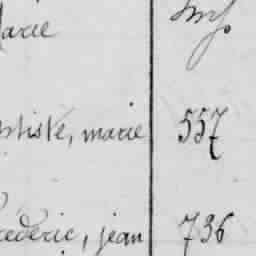 Marie
ptiste, marie 557
rederic, jean 736